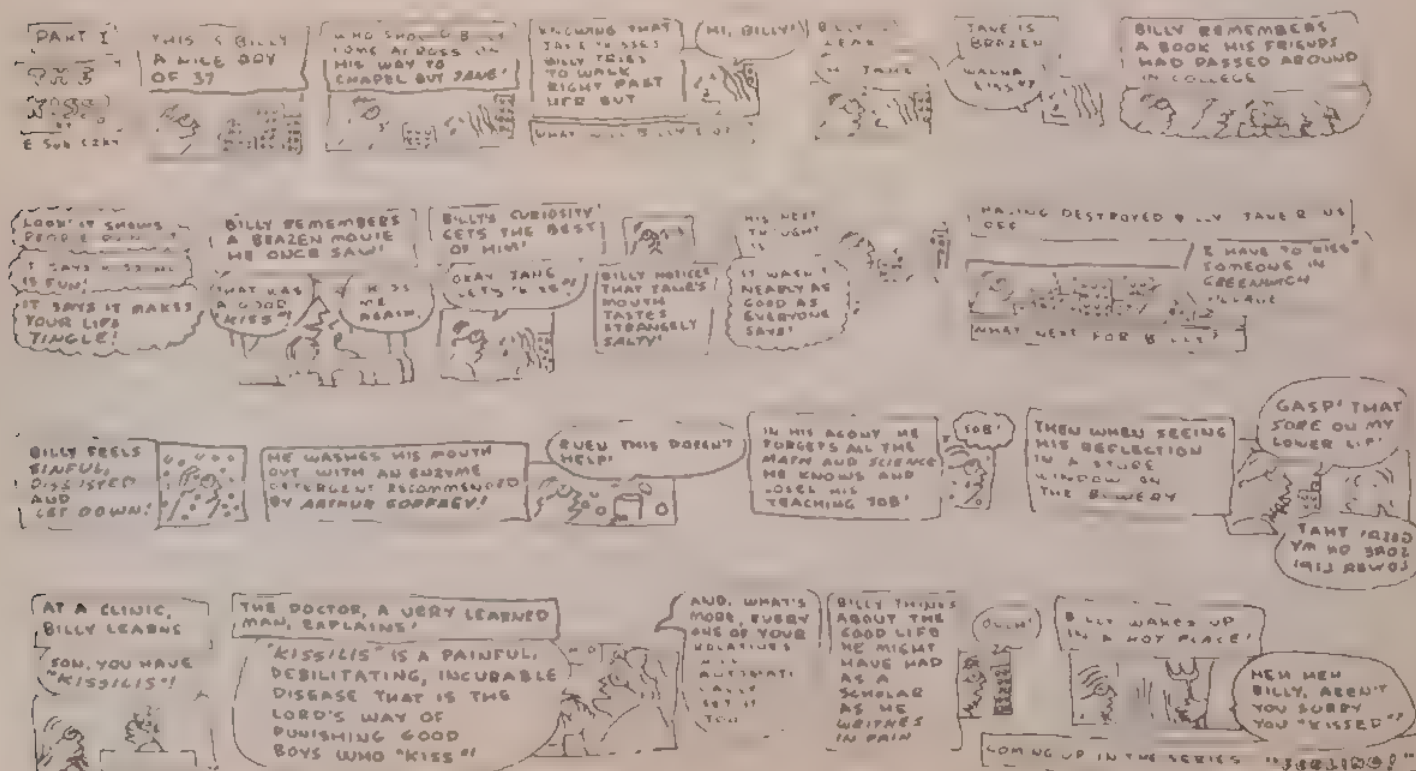 PART I
THIS IS BILLY
A NICE BOY
OF 37
WHO SHOULD BILLY
COME ACROSS ON
HIS WAY TO
CHAPEL BUT JANE!
KNOWING THAT
JANE KISSES
BILLY TRIES
TO WALK
RIGHT PAST
HER BUT
HI, BILLY!
WHAT WILL BILLY DO?
BILLY
JANE
JANE IS
BRAZEN
WANNA
KISS?
BILLY REMEMBERS
A BOOK HIS FRIENDS
HAD PASSED AROUND
IN COLLEGE
LOOK! IT SHOWS
PEOPLE
IT SAYS KISSING
IS FUN!
IT SAYS IT MAKES
YOUR LIPS
TINGLE!
BILLY REMEMBERS
A BRAZEN MOVIE
HE ONCE SAW!
THAT WAS
A GOOD
"KISS"!
KISS
ME
AGAIN.
BILLY'S CURIOSITY
GETS THE BEST
OF HIM!
OKAY JANE
LET'S KISS!
BILLY NOTICES
THAT JANE'S
MOUTH
TASTES
STRANGELY
SALTY!
HIS NEXT
THOUGHT
IS
IT WASN'T
NEARLY AS
GOOD AS
EVERYONE
SAYS!
HAVING DESTROYED BILLY JANE RUNS
OFF
I HAVE TO KISS
SOMEONE IN
GREENWICH
VILLAGE
WHAT NEXT FOR BILLY?
BILLY FEELS
SINFUL,
DISGUSTED
AND
LET DOWN!
HE WASHES HIS MOUTH
OUT WITH AN ENZYME
DETERGENT RECOMMENDED
BY ARTHUR GODFREY!
EVEN THIS DOESN'T
HELP!
IN HIS AGONY HE
FORGETS ALL THE
MATH AND SCIENCE
HE KNOWS AND
LOSES HIS
TEACHING JOB!
SOB!
THEN WHEN SEEING
HIS REFLECTION
IN A STORE
WINDOW ON
THE BOWERY
GASP! THAT
SORE ON MY
LOWER LIP!
AT A CLINIC,
BILLY LEARNS
SON, YOU HAVE
"KISSILIS"!
THE DOCTOR, A VERY LEARNED
MAN, EXPLAINS!
"KISSILIS" IS A PAINFUL,
DEBILITATING, INCURABLE
DISEASE THAT IS THE
LORD'S WAY OF
PUNISHING GOOD
BOYS WHO "KISS"!
AND, WHAT'S
MORE, EVERY
ONE OF YOUR
RELATIVES
WILL
GET IT
TOO
BILLY THINKS
ABOUT THE
GOOD LIFE
HE MIGHT
HAVE HAD
AS A
SCHOLAR
AS HE
WRITHES
IN PAIN
OUCH!
BILLY WAKES UP
IN A HOT PLACE!
HEH HEH
BILLY, AREN'T
YOU SORRY
YOU "KISSED"?
COMING UP IN THE SERIES